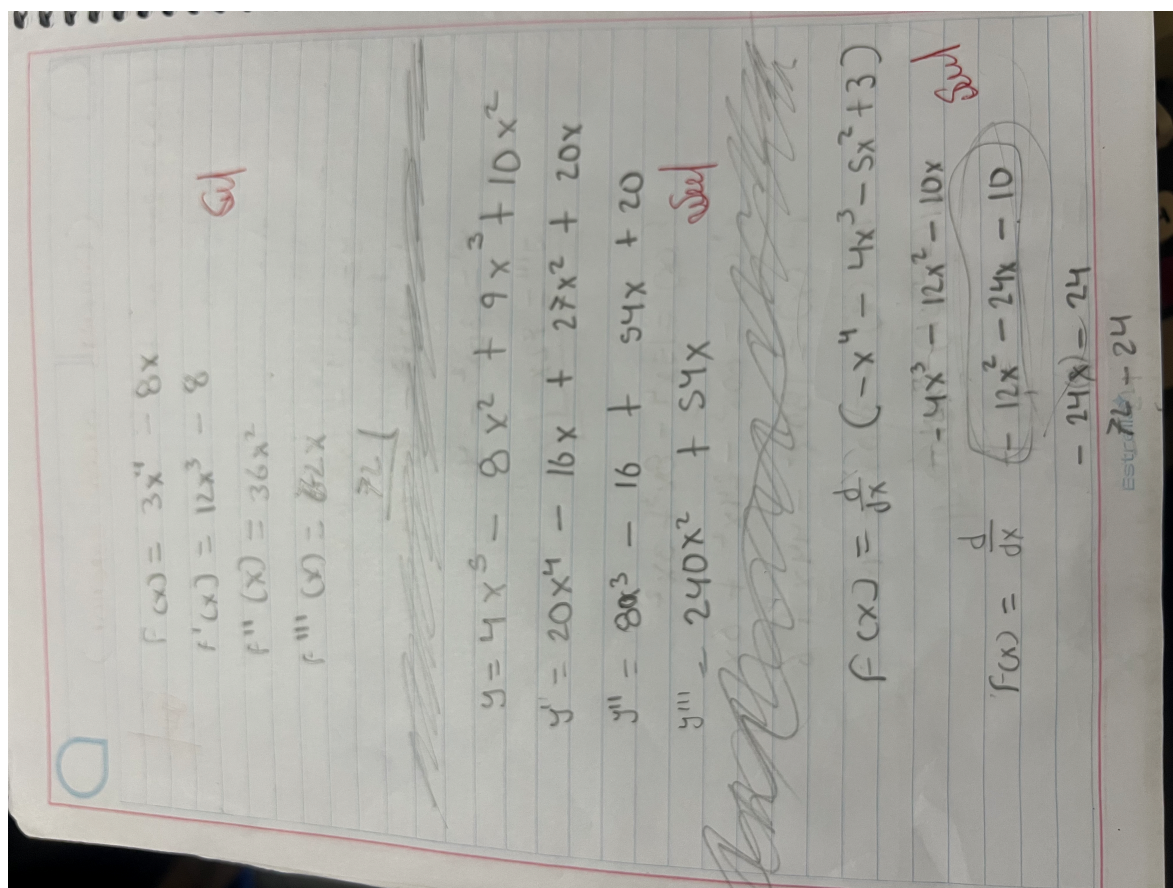 F(x) = 3x⁴ - 8x
f'(x) = 12x³ - 8
f''(x) = 36x²
f'''(x) = 72x
72
y = 4x⁵ - 8x² + 9x³ + 10x²
y' = 20x⁴ - 16x + 27x² + 20x
y'' = 80x³ - 16 + 54x + 20
y''' = 240x² + 54x
F(x) = d/dx (-x⁴ - 4x³ - 5x² + 3)
-4x³ - 12x² - 10x
f(x) = d/dx - 12x² - 24x - 10
- 24(x) - 24
72 - 24